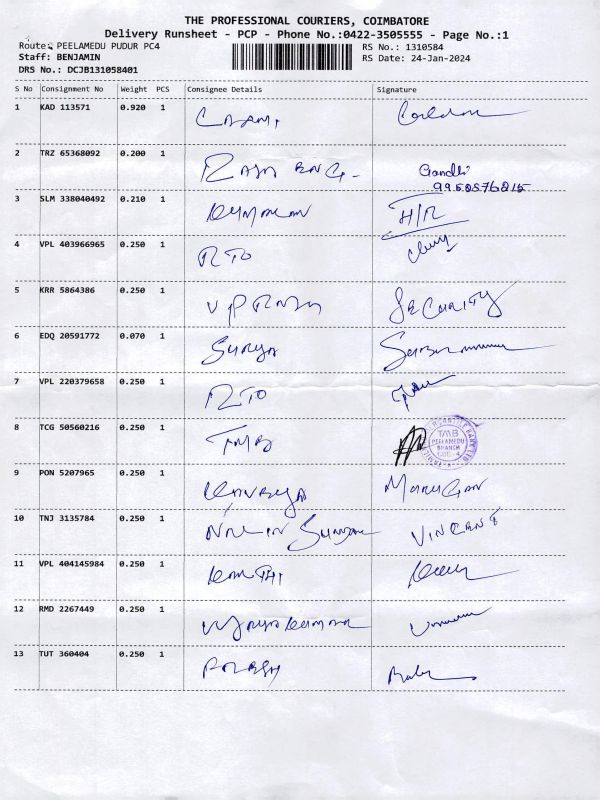 THE PROFESSIONAL COURIERS, COIMBATORE
Delivery Runsheet - PCP - Phone No.:0422-3505555 - Page No.:1
Route: PEELAMEDU PUDUR PC4 RS No.: 1310584
Staff: BENJAMIN RS Date: 24-Jan-2024
DRS No.: DCJB131058401
S No Consignment No Weight PCS Consignee Details Signature
1 KAD 113571 0.920 1
2 TRZ 65368092 0.200 1 Gandhi
3 SLM 338040492 0.210 1 H/R
4 VPL 403966965 0.250 1 RTO
5 KRR 5864386 0.250 1 SECURITY
6 EDQ 20591772 0.070 1 Surya
7 VPL 220379658 0.250 1 RTO
8 TCG 50560216 0.250 1 TMB
TMB
PEELAMEDU
BRANCH
CBE-4
9 PON 5207965 0.250 1 Murugan
10 TNJ 3135784 0.250 1 VINCENT
11 VPL 404145984 0.250 1
12 RMD 2267449 0.250 1
13 TUT 360404 0.250 1